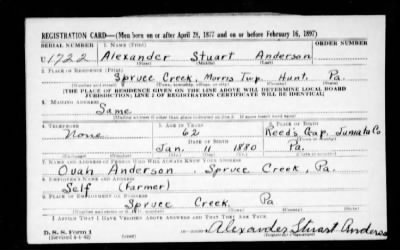 REGISTRATION CARD—(Men born on or after April 28, 1877 and on or before February 16, 1897)
SERIAL NUMBER 1. NAME (Print) ORDER NUMBER
U 1722 Alexander Stuart Anderson
(First) (Middle) (Last)
2. PLACE OF RESIDENCE (Print)
Spruce Creek, Morris Twp. Hunt. Pa.
(Number and street) (Town, township, village, or city) (County) (State)
[THE PLACE OF RESIDENCE GIVEN ON THE LINE ABOVE WILL DETERMINE LOCAL BOARD
JURISDICTION; LINE 2 OF REGISTRATION CERTIFICATE WILL BE IDENTICAL]
3. MAILING ADDRESS
Same
[Mailing address if other than place indicated on line 2. If same insert word same]
4. TELEPHONE 5. AGE IN YEARS 6. PLACE OF BIRTH
None 62 Reeds Gap, Juniata Co
DATE OF BIRTH
Jan. 11 1880 Pa.
(Exchange) (Number) (Mo.) (Day) (Yr.) (State or country)
7. NAME AND ADDRESS OF PERSON WHO WILL ALWAYS KNOW YOUR ADDRESS
Anderson . Spruce Creek, Pa.
8. EMPLOYER'S NAME AND ADDRESS
Self (Farmer)
9. PLACE OF EMPLOYMENT OR BUSINESS
Spruce Creek Pa
(Number and street or R. F. D. number) (Town) (County) (State)
I AFFIRM THAT I HAVE VERIFIED ABOVE ANSWERS AND THAT THEY ARE TRUE.
D. S. S. Form 1
(Revised 4-1-42)
Alexander Stuart Anderson